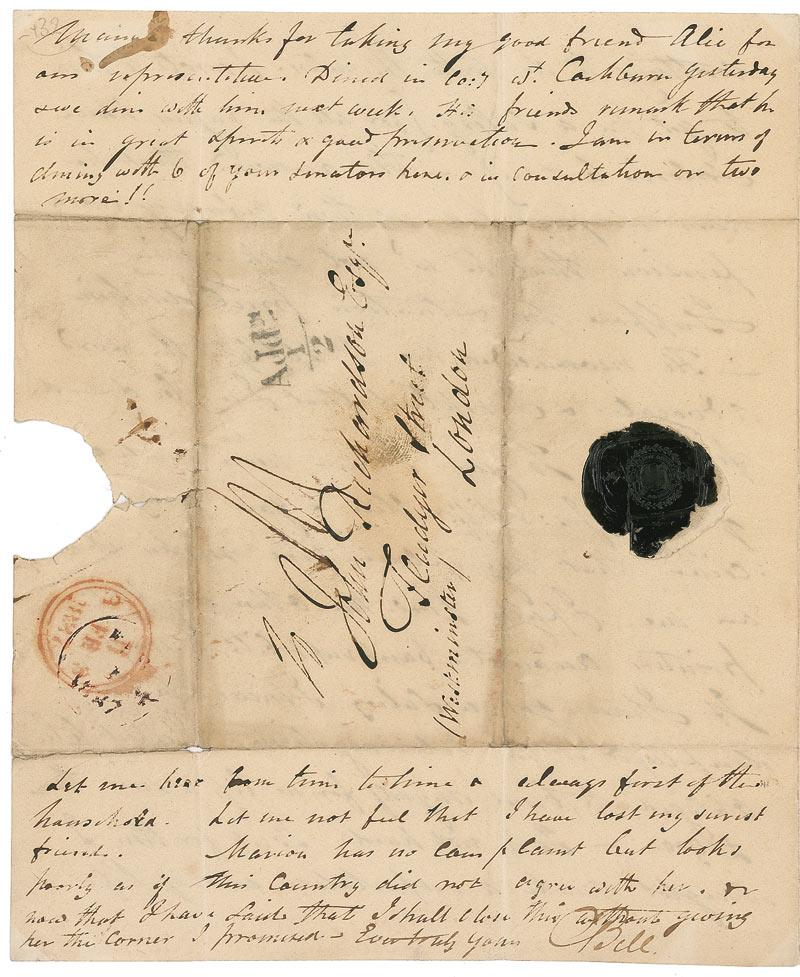 Many thanks for taking my good friend Alie for
our representitive. Dined in Co:y wt. Cockburn yesterday
& we dine with him next week. His friends remark that he
is in great spirits & good preservation. I am in terms of
dining with 6 of your senators here. & in consultation on two
more!!
Addl.
1/2
John Richardson Esqr.
Fludyer Street
London
(Westminster)
1837
Let me hear from time to time & always first of the
household. Let me not feel that I have lost my surest
friend. Marion has no complaint but looks
poorly as if this Country did not agree with her. &
now that I have said that I shall close this without giving
her the Corner I promised – Ever truly yours CBell.